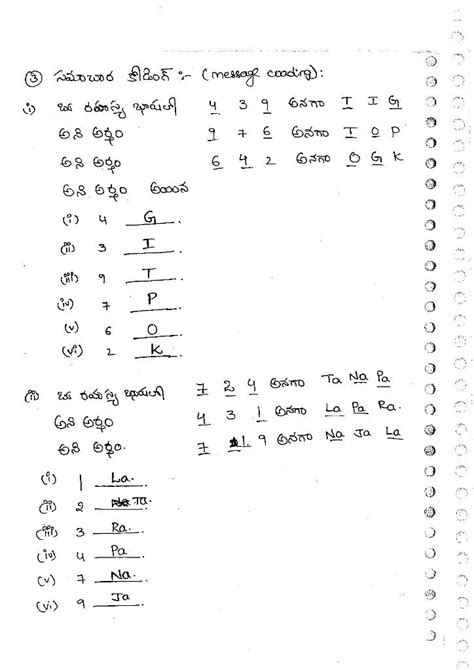 ③ సమాచార కోడింగ్ :- (message coading):
(i) ఒక రహస్య భాషలో 4 3 9 అనగా T I G
అని అర్థం 9 7 6 అనగా T O P
అని అర్థం 6 4 2 అనగా O G K
అని అర్థం అయిన
(i) 4 G.
(ii) 3 I.
(iii) 9 T.
(iv) 7 P.
(v) 6 O.
(vi) 2 K.
(ii) ఒక రహస్య భాషలో 7 2 4 అనగా Ta Na Pa
అని అర్థం 4 3 1 అనగా La Pa Ra.
అని అర్థం. 7 1 9 అనగా Na Ja La
(i) 1 La.
(ii) 2 Ta.
(iii) 3 Ra.
(iv) 4 Pa.
(v) 7 Na.
(vi) 9 Ja